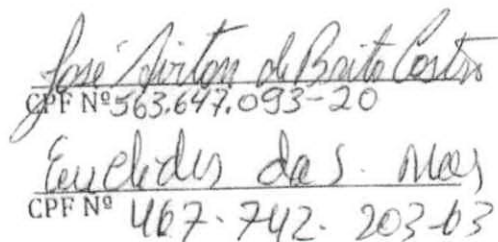 José Airton de Brito Castro
CPF Nº 563.647.093-20
Euclides da S.
CPF Nº 467.742.203-63